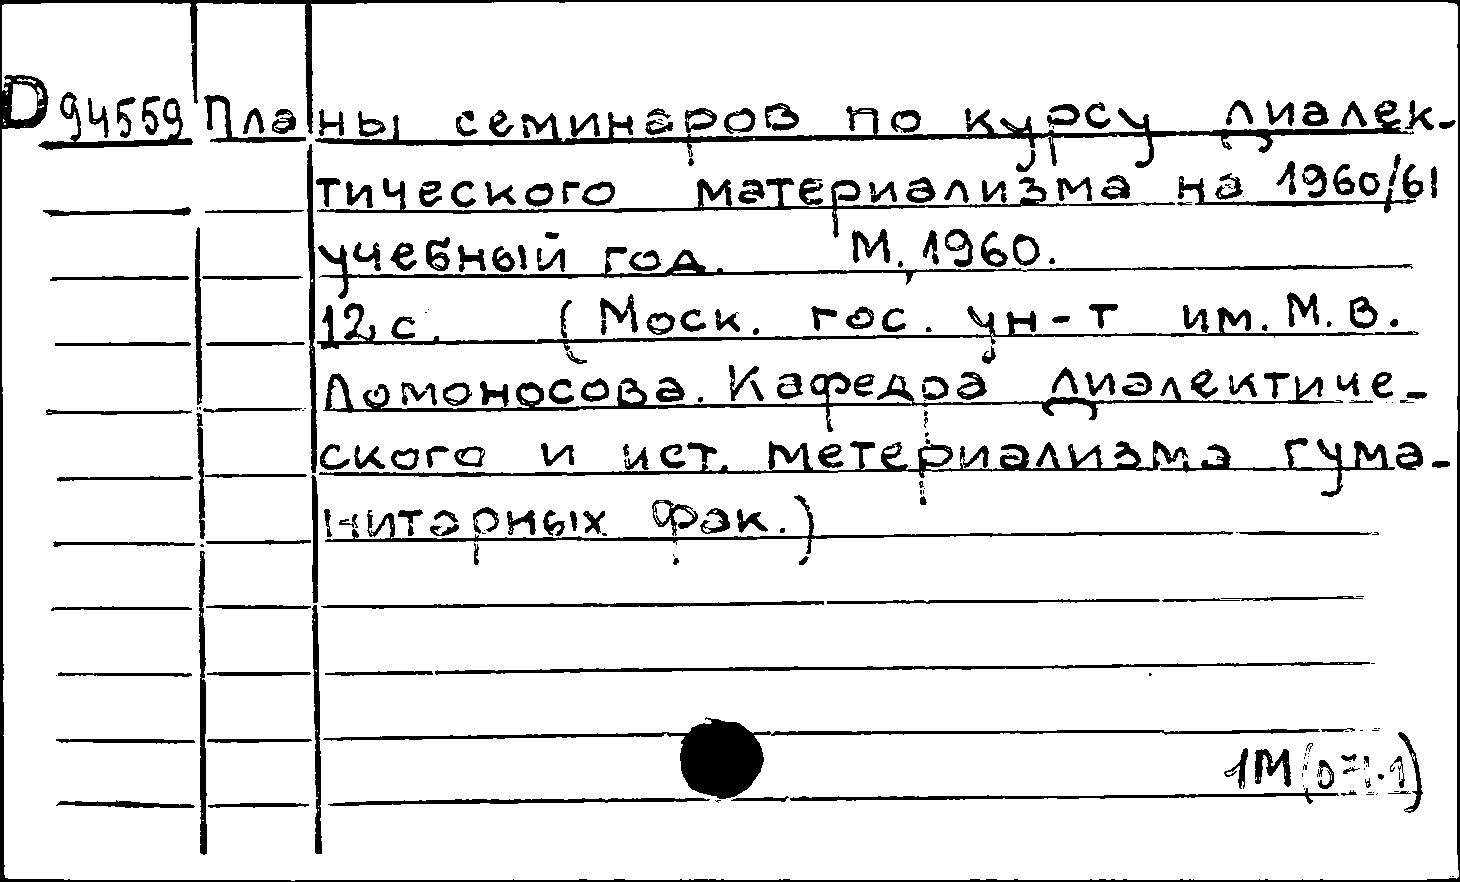 D 94559 Планы семинаров по курсу диалек-
тического материализма на 1960/61
учебный год. М., 1960.
12 с. (Моск. гос. ун-т им. М. В.
Ломоносова. Кафедра диалектиче-
ского и ист. метериализма гума-
нитарных фак.)
1М(071.1)